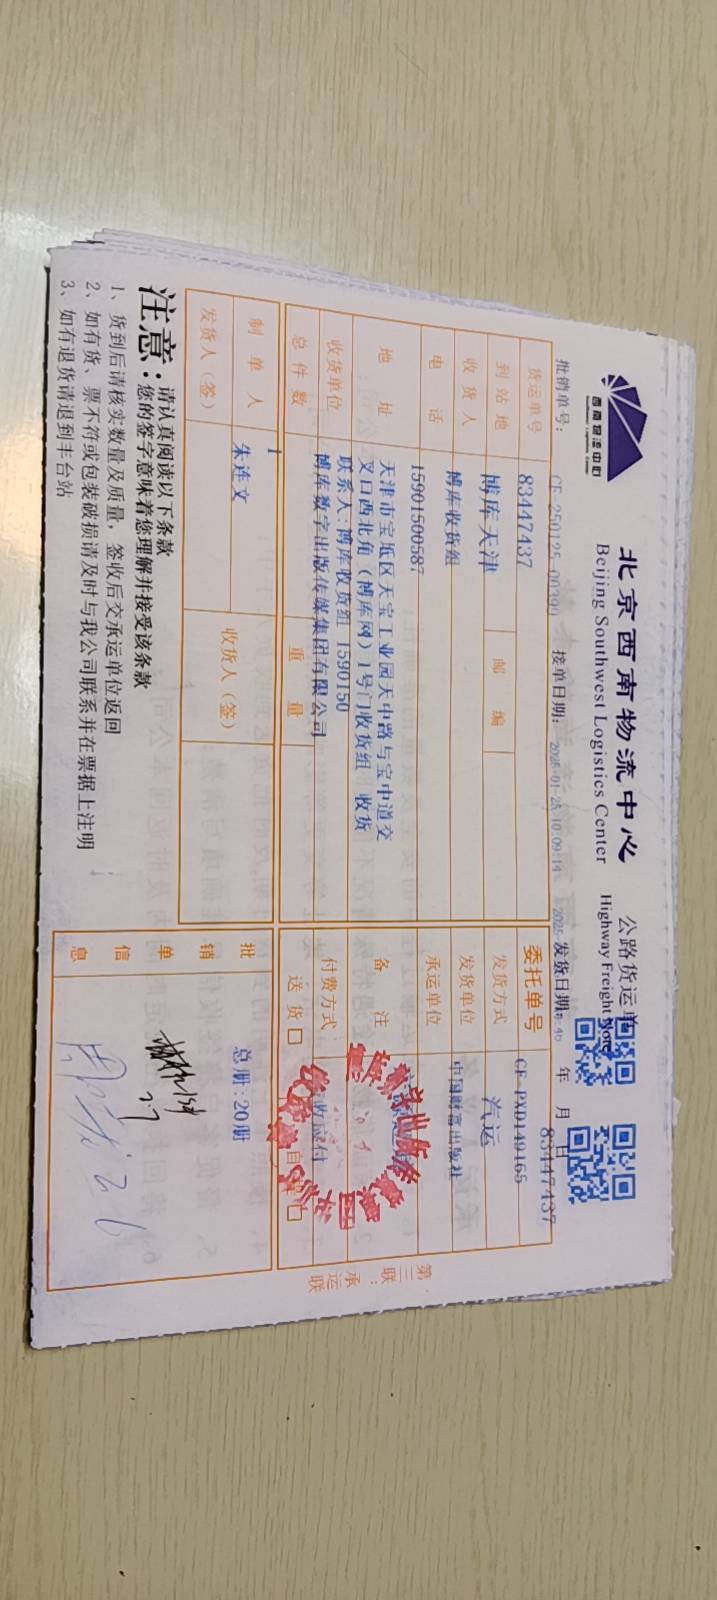 西南物流中心
北京西南物流中心
Beijing Southwest Logistics Center
公路货运单
Highway Freight Note
批销单号: CF-250125-00399
接单日期: 2025-01-25 10:09:14
发货日期: 年 月 日
83447437
货运单号 83447437
委托单号 CF-PXD149165
到站地 博库天津 邮编
发货方式 汽运
收货人 博库收货组
发货单位 中国财富出版社
电话 15901500587
承运单位
地址 天津市宝坻区天宝工业园天中路与宝中道交
叉口西北角(博库网)1号门收货组 收货
联系人:博库收货组 1590150
备注
收货单位 博库数字出版传媒集团有限公司
付费方式 收应付
总件数 1 重量
送货□ 自提□
制单人 朱连文 收货人(签)
发货人(签)
批销单信息 总册:20册
第三联:承运联
注意:
请认真阅读以下条款
您的签字意味着您理解并接受该条款
1、货到后请核实数量及质量,签收后交承运单位返回
2、如有货、票不符或包装破损请及时与我公司联系并在票据上注明
3、如有退货请退到丰台站